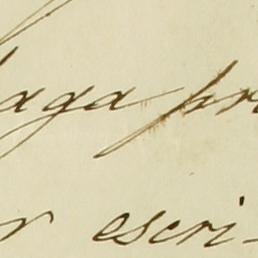 haga pr
r escri-